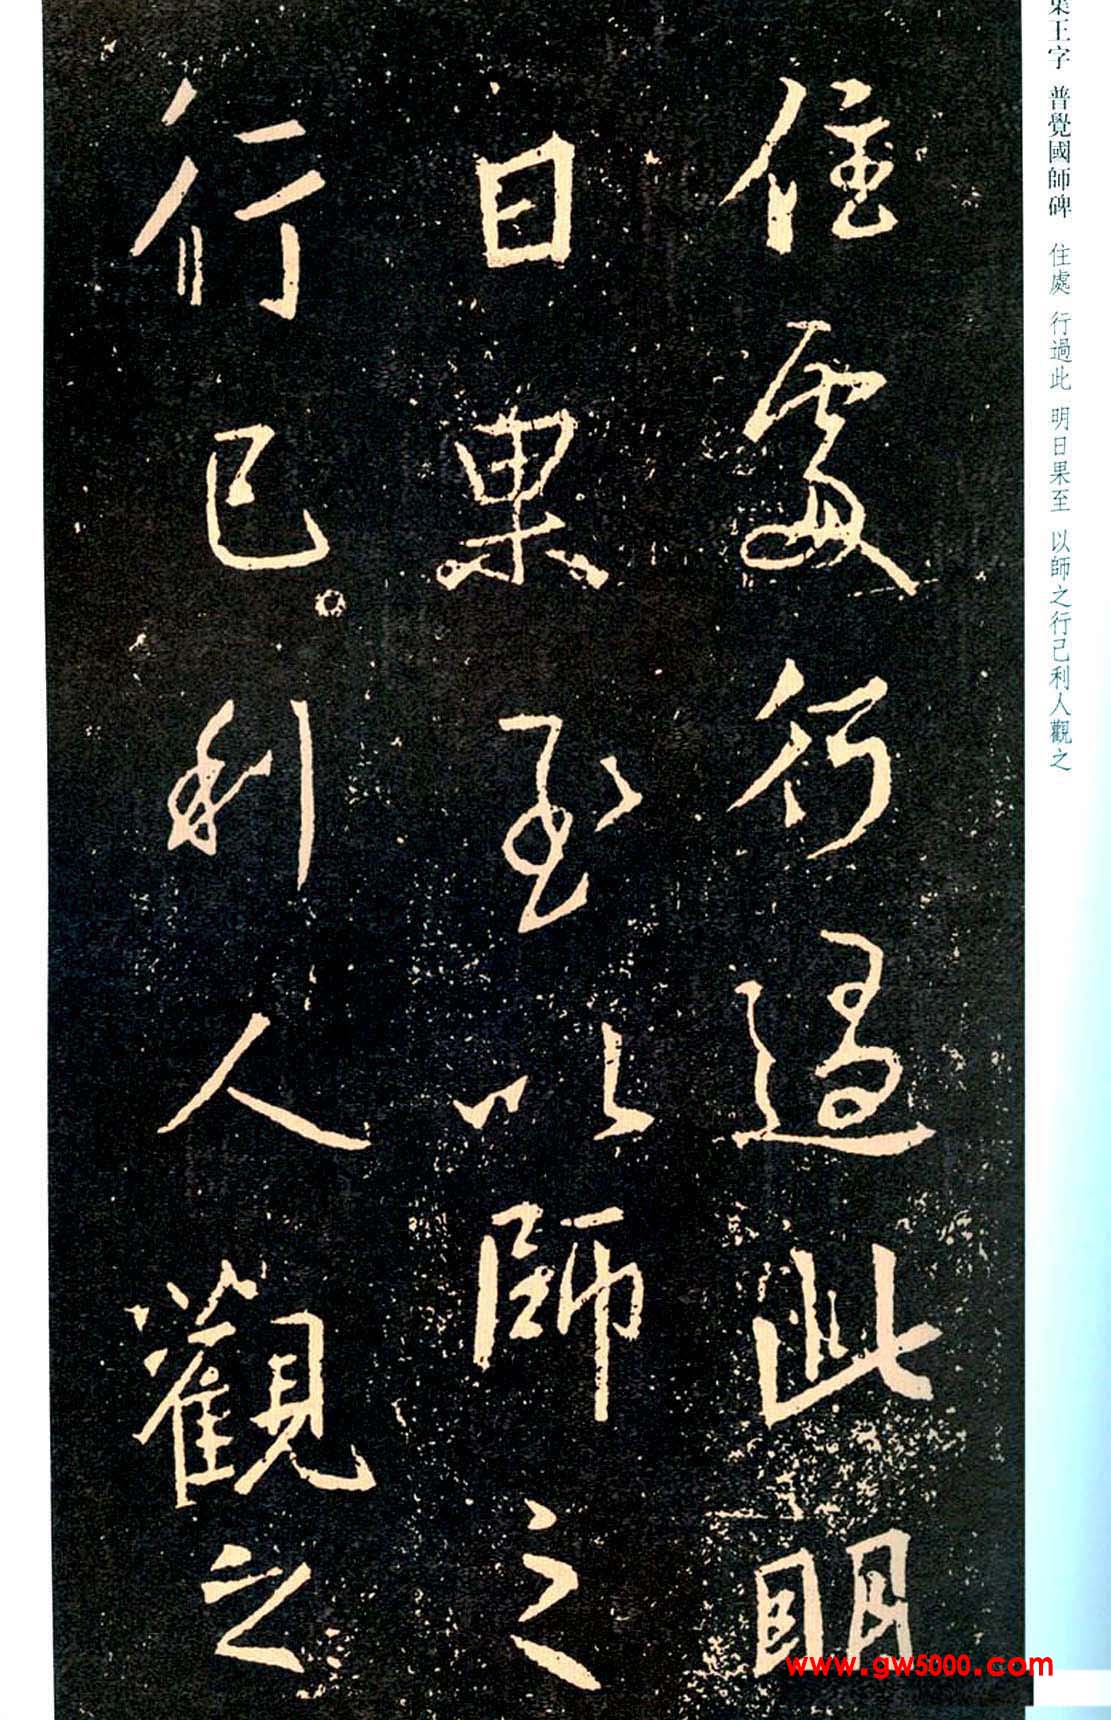 住處行過此明
日果至以師之
行已利人觀之
集王字 普覺國師碑 住處 行過此 明日果至 以師之行己利人觀之
www.gw5000.com